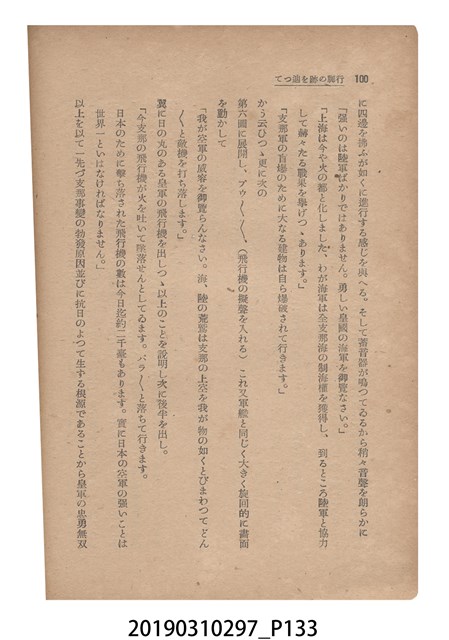 100　行脚の跡を辿つて
に四邊を拂ふが如くに進行する感じを與へる。そして蓄音器が鳴つてゐるから稍々音聲を朗らかに
「强いのは陸軍ばかりではありません。勇しい皇國の海軍を御覽なさい。」
「上海は今や火の都と化しました、わが海軍は全支那海の制海權を獲得し、到るところ陸軍と協力
して赫々たる戰果を擧げつゝあります。」
「支那軍の盲爆のために大なる建物は自ら爆破されて行きます。」
かう云ひつゝ更に次の
第六圖に展開し、ブゥ〳〵〳〵、（飛行機の擬聲を入れる）これ又軍艦と同じく大きく旋回的に畫面
を動かして
「我が空軍の威容を御覽らんなさい。海、陸の荒鷲は支那の上空を我が物の如くとびまわつてどん
〳〵と敵機を打ち落します。」
翼に日の丸のある皇軍の飛行機を出しつゝ以上のことを說明し次に後半を出し。
「今支那の飛行機が火を吐いて墜落せんとしてゐます。バラ〳〵と落ちて行きます。
日本のために擊ち落された飛行機の數は今日迄約二千臺もあります。實に日本の空軍の强いことは
世界一といはなければなりません。」
以上を以て一先づ支那事變の勃發原因並びに抗日のよつて生する根源であることから皇軍の忠勇無双
20190310297_P133